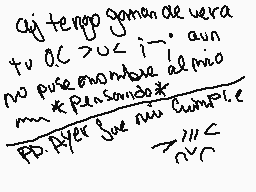 aj tengo ganan de vera
tu OC >u< i~. aun
no puse enombre al mio
mm *pensando*
PD. Ayer fue mi cumple
>"'<